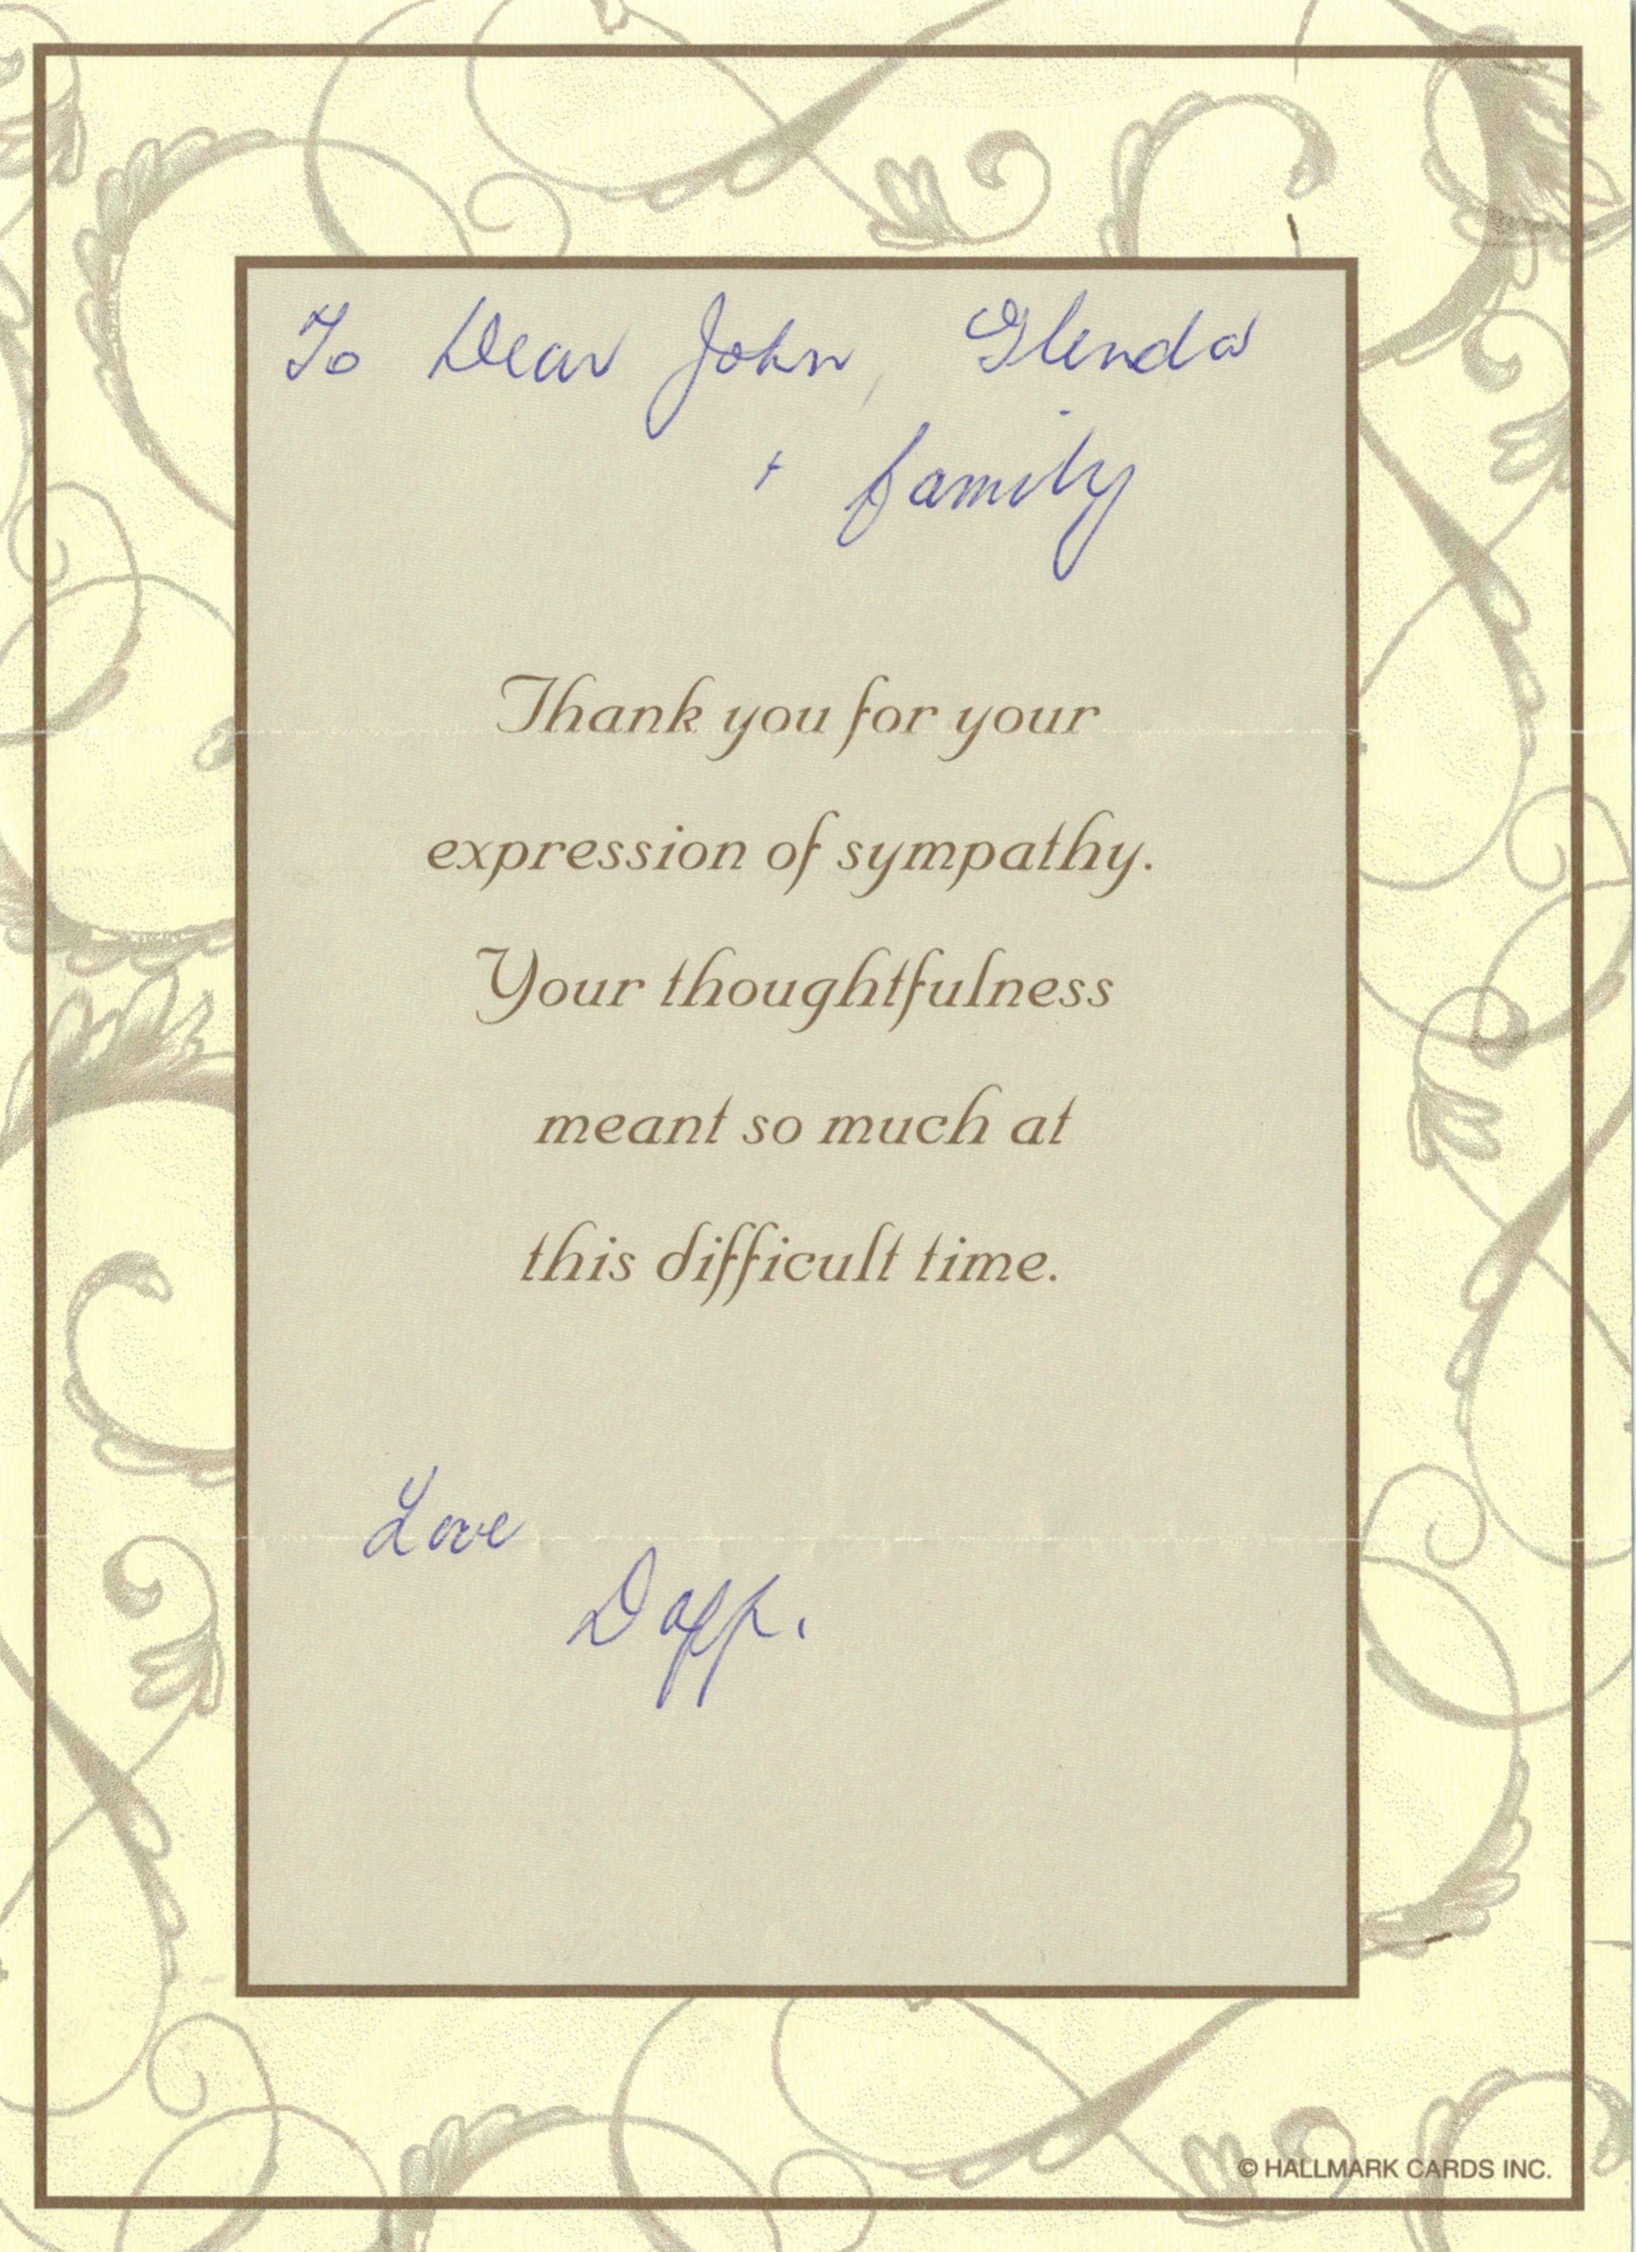 To Dear John, Glenda
+ family
Thank you for your
expression of sympathy.
Your thoughtfulness
meant so much at
this difficult time.
Love
© HALLMARK CARDS INC.